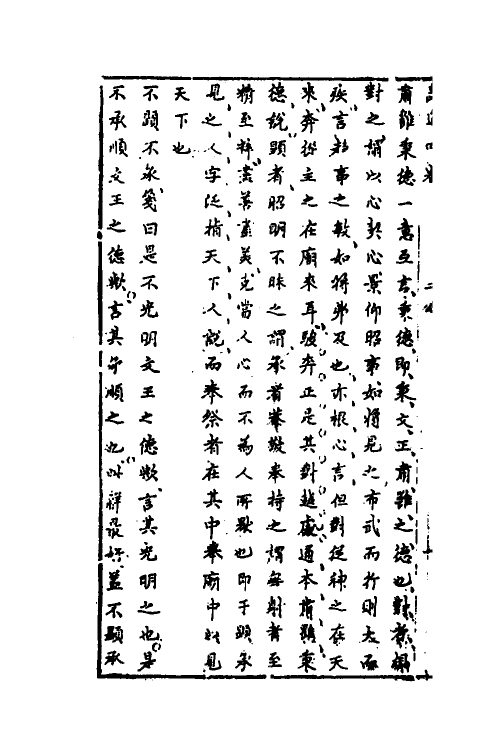 肅雝秉德一意互言秉德即秉文王肅雝之德也對者
對之謂以心對心景仰昭事如將見之布武而行則太
疾言趨事之敏如將弗及也亦根心言但對從神之在天
來奔從主之在廟來耳駿奔正是其對越處通本肅雝秉
德說顯者昭明不昧之謂承者奉敬奉持之謂無射者至
精至粹盡善盡美克當人心而不為人所厭也即于顯承
見之人字泛指天下人說而奉祭者在其中奉廟中以見
天下也
不顯不承箋曰是不光明文王之德歟言其光明之也是
不承順文王之德歟言其承順之也此祥最好蓋不顯承